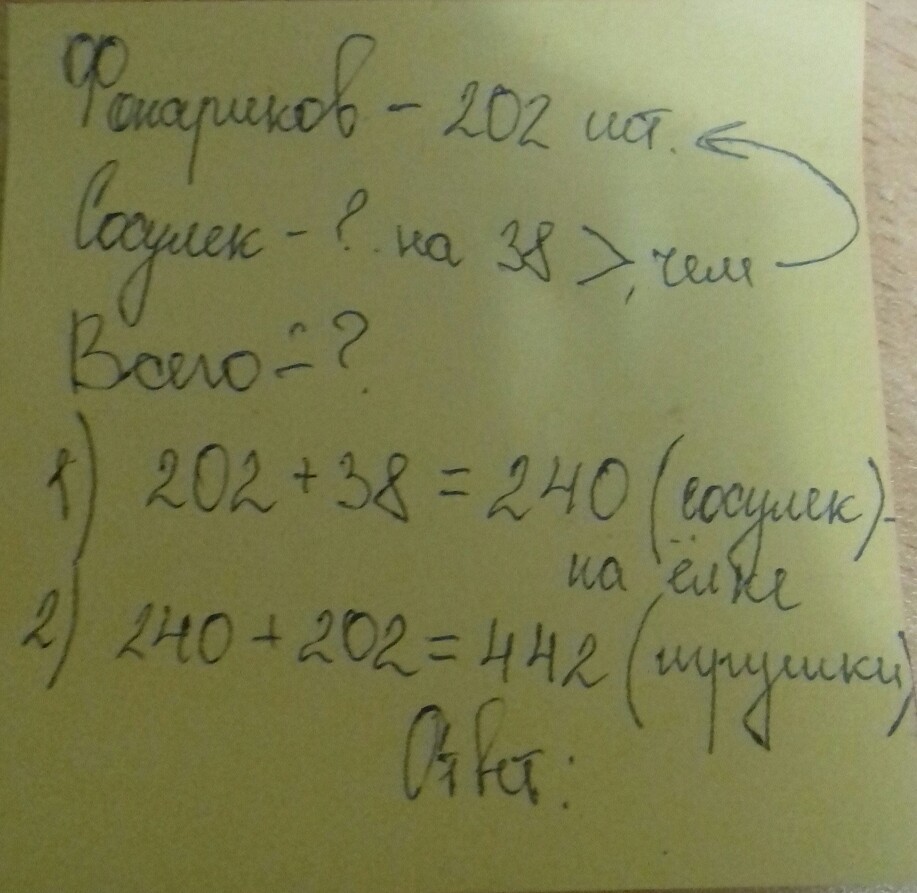 Фонариков - 202 шт.
Сосулек - ? на 38 >, чем
Всего - ?
1) 202 + 38 = 240 (сосулек) -
на ёлке
2) 240 + 202 = 442 (игрушки)
Ответ: